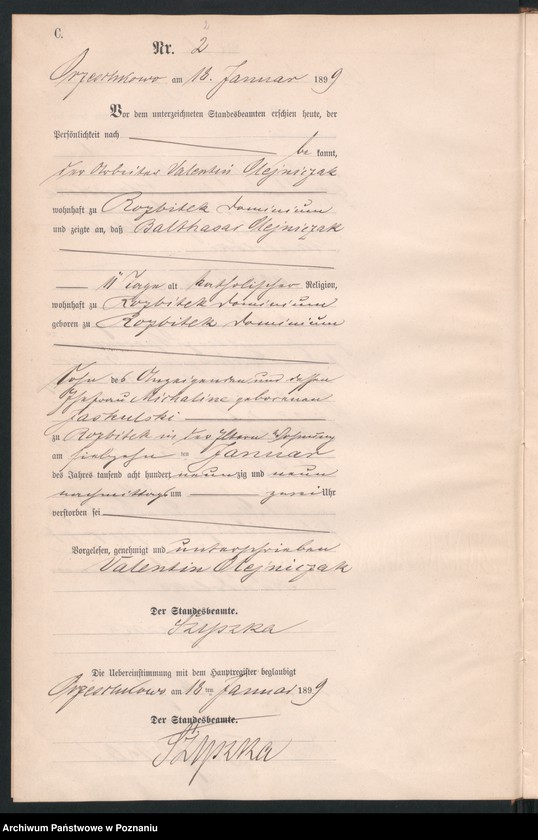 C.
Nr. 2
Orzeschkowo am 18. Januar 1899
Vor dem unterzeichneten Standesbeamten erschien heute, der
Persönlichkeit nach
be kannt,
der Arbeiter Valentin Olejniczak
wohnhaft zu Rozbitek Dominium
und zeigte an, daß Balthasar Olejniczak
11 Tage alt katholischer Religion,
wohnhaft zu Rozbitek Dominium
geboren zu Rozbitek Dominium
Sohn des Anzeigenden und dessen
Ehefrau Michaline geborenen
Jaskulski
zu Rozbitek in der Eltern Wohnung
am siebzehn ten Januar
des Jahres tausend acht hundert neunzig und neun
nachmittags um zwei Uhr
verstorben sei
Vorgelesen, genehmigt und unterschrieben
Valentin Olejniczak
Der Standesbeamte.
Szyszka
Die Uebereinstimmung mit dem Hauptregister beglaubigt
Orzeschkowo am 18 ten Januar 1899
Der Standesbeamte.
Szyszka
Archiwum Państwowe w Poznaniu